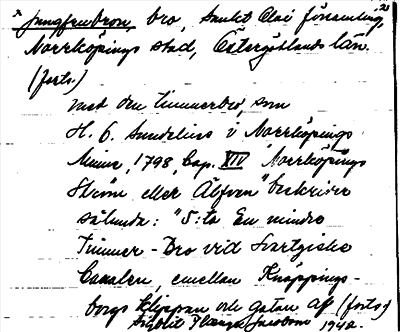 x Jungfrubron, bro, Sankt Olai församling, 2)
Norrköpings stad, Östergötlands län.
(forts.)
med den timmerbro, som
H. O. Sundelius i Norrköpings
Minne, 1798, Cap. XIV "Norrköpings
Ström eller Älfven" beskriver
sålunda: "5:to En mindre
Timmer-Bro vid Svartgiske
Canalen, emellan Knäppings-
borgs Klippan och gatan af (forts.)
Jacobson 1942.